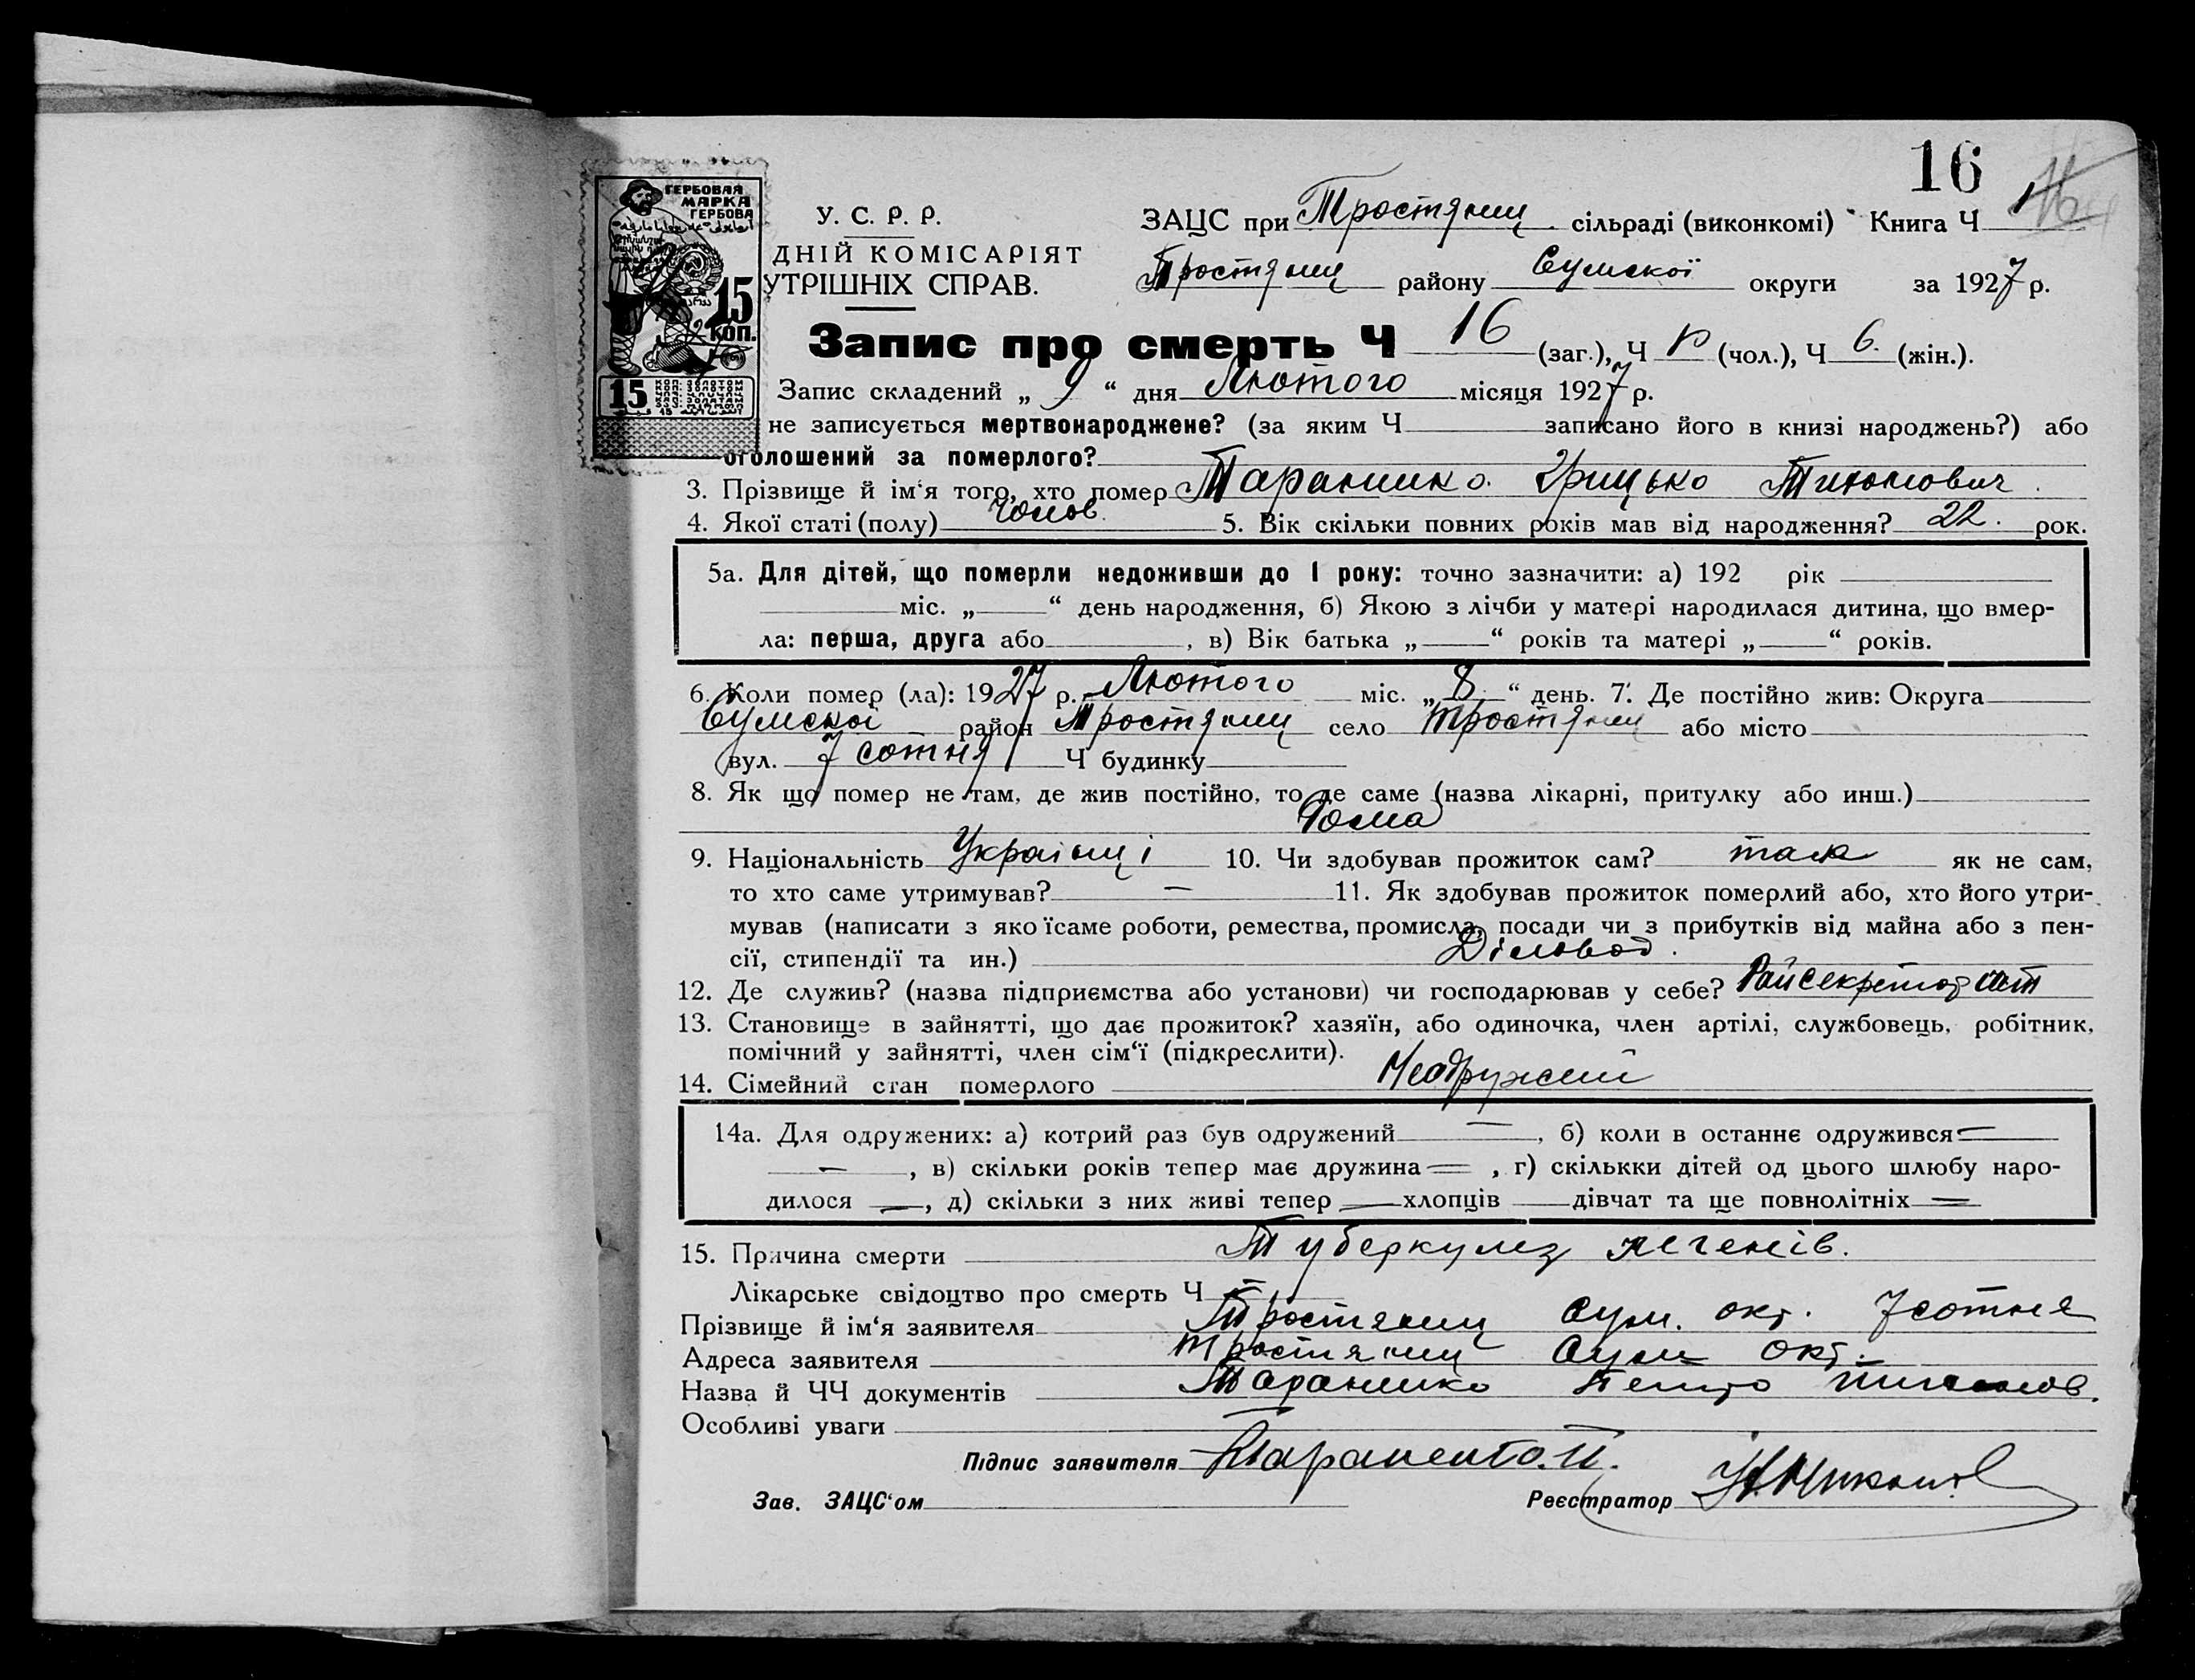 16
ГЕРБОВАЯ
МАРКА
ГЕРБОВА
15
КОП.
15
У. С. Р. Р.
ДНІЙ КОМІСАРІЯТ
УТРІШНІХ СПРАВ.
ЗАЦС при Тростянец сільраді (виконкомі) Книга Ч 1
Тростянец району Сумської округи за 1927 р.
Запис про смерть Ч 16 (заг.), Ч 10 (чол.), Ч 6. (жін.).
Запис складений „ 9 “ дня Лютого місяця 1927 р.
не записується мертвонароджене? (за яким Ч записано його в книзі народжень?) або
оголошений за померлого?
3. Прізвище й ім‘я того, хто помер Тараненко Грицько Тихонович
4. Якої статі (полу) чолов. 5. Вік скільки повних років мав від народження? 22. рок.
5а. Для дітей, що померли недоживши до 1 року: точно зазначити: а) 192 рік
міс. „ “ день народження, б) Якою з лічби у матері народилася дитина, що вмер-
ла: перша, друга або , в) Вік батька „ “ років та матері „ “ років.
6. Коли помер (ла): 1927 р. Лютого міс. „ 8 “ день. 7. Де постійно жив: Округа
Сумской район Тростянец село Тростянец або місто
вул. 7 сотня Ч будинку
8. Як що помер не там, де жив постійно, то де саме (назва лікарні, притулку або инш.)
Дома
9. Національність Українці 10. Чи здобував прожиток сам? так як не сам,
то хто саме утримував? — 11. Як здобував прожиток померлий або, хто його утри-
мував (написати з яко їсаме роботи, ремества, промисла, посади чи з прибутків від майна або з пен-
сії, стипендії та ин.) Діловод.
12. Де служив? (назва підприємства або установи) чи господарював у себе? Райсекретаріат
13. Становище в зайнятті, що дає прожиток? хазяїн, або одиночка, член артілі, службовець, робітник,
помічний у зайнятті, член сім‘ї (підкреслити).
14. Сімейний стан померлого Неодружений
14а. Для одружених: а) котрий раз був одружений — , б) коли в останнє одружився —
— , в) скільки років тепер має дружина — , г) скількки дітей од цього шлюбу наро-
дилося — , д) скільки з них живі тепер — хлопців дівчат та ще повнолітніх —
15. Причина смерти Туберкулез легенів.
Лікарське свідоцтво про смерть Ч —
Прізвище й ім‘я заявителя Тростянец Сум. окр. 7 сотня
Адреса заявителя Тростянец Сум. окр.
Назва й ЧЧ документів Тараненко Тихонов.
Особливі уваги —
Підпис заявителя Тараненко.
Зав. ЗАЦС‘ом Реєстратор